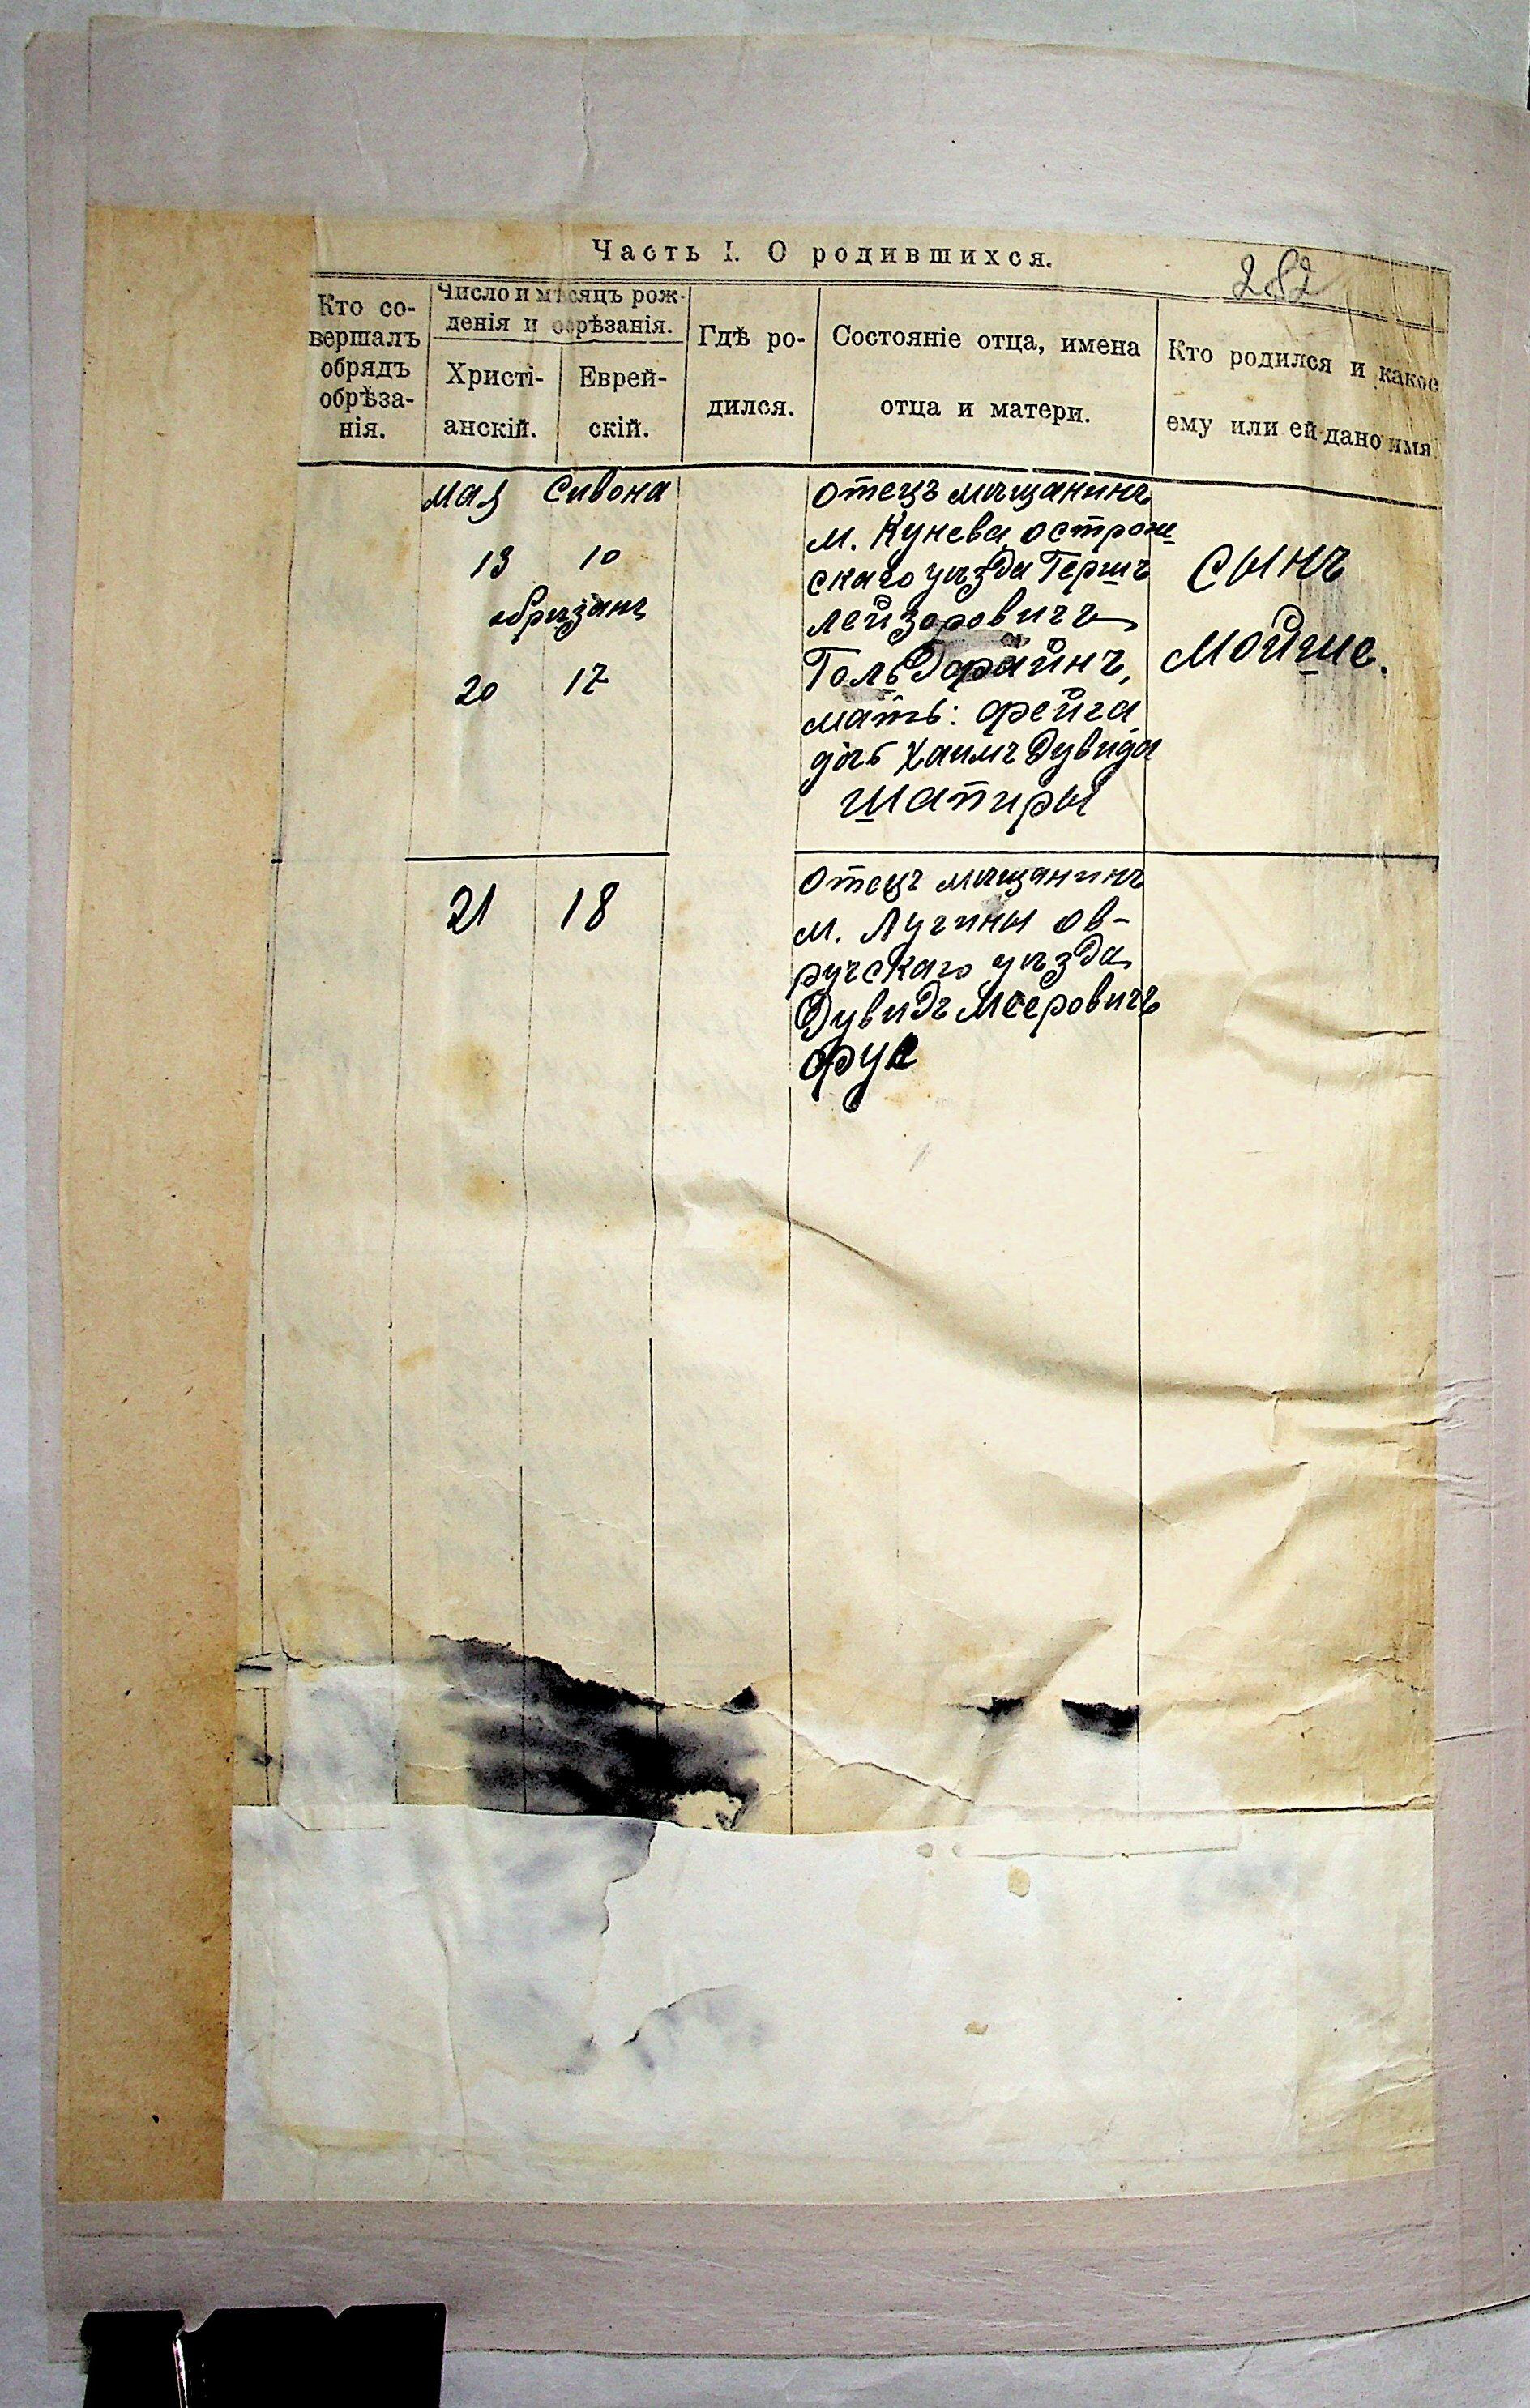 Часть I. О родившихся.
282
Кто со-
вершалъ
обрядъ
обрѣза-
нія.
Число и мѣсяцъ рож-
денія и обрѣзанія.
Христі-
анскій.
Еврей-
скій.
Гдѣ ро-
дился.
Состояніе отца, имена
отца и матери.
Кто родился и какое
ему или ей дано имя
Мая Сивона
13 10
обрѣзанъ
20 17
Отецъ мѣщанинъ
м. Кунева острож-
скаго уѣзда Гершъ
Лейзоровичъ
мать: Фейга
дочь Хаимъ Дувида
Шапиры
сынъ
Мойше.
21 18
Отецъ мѣщанинъ
м. Лугины ов-
ручскаго уѣзда
Дувидъ Мееровичъ